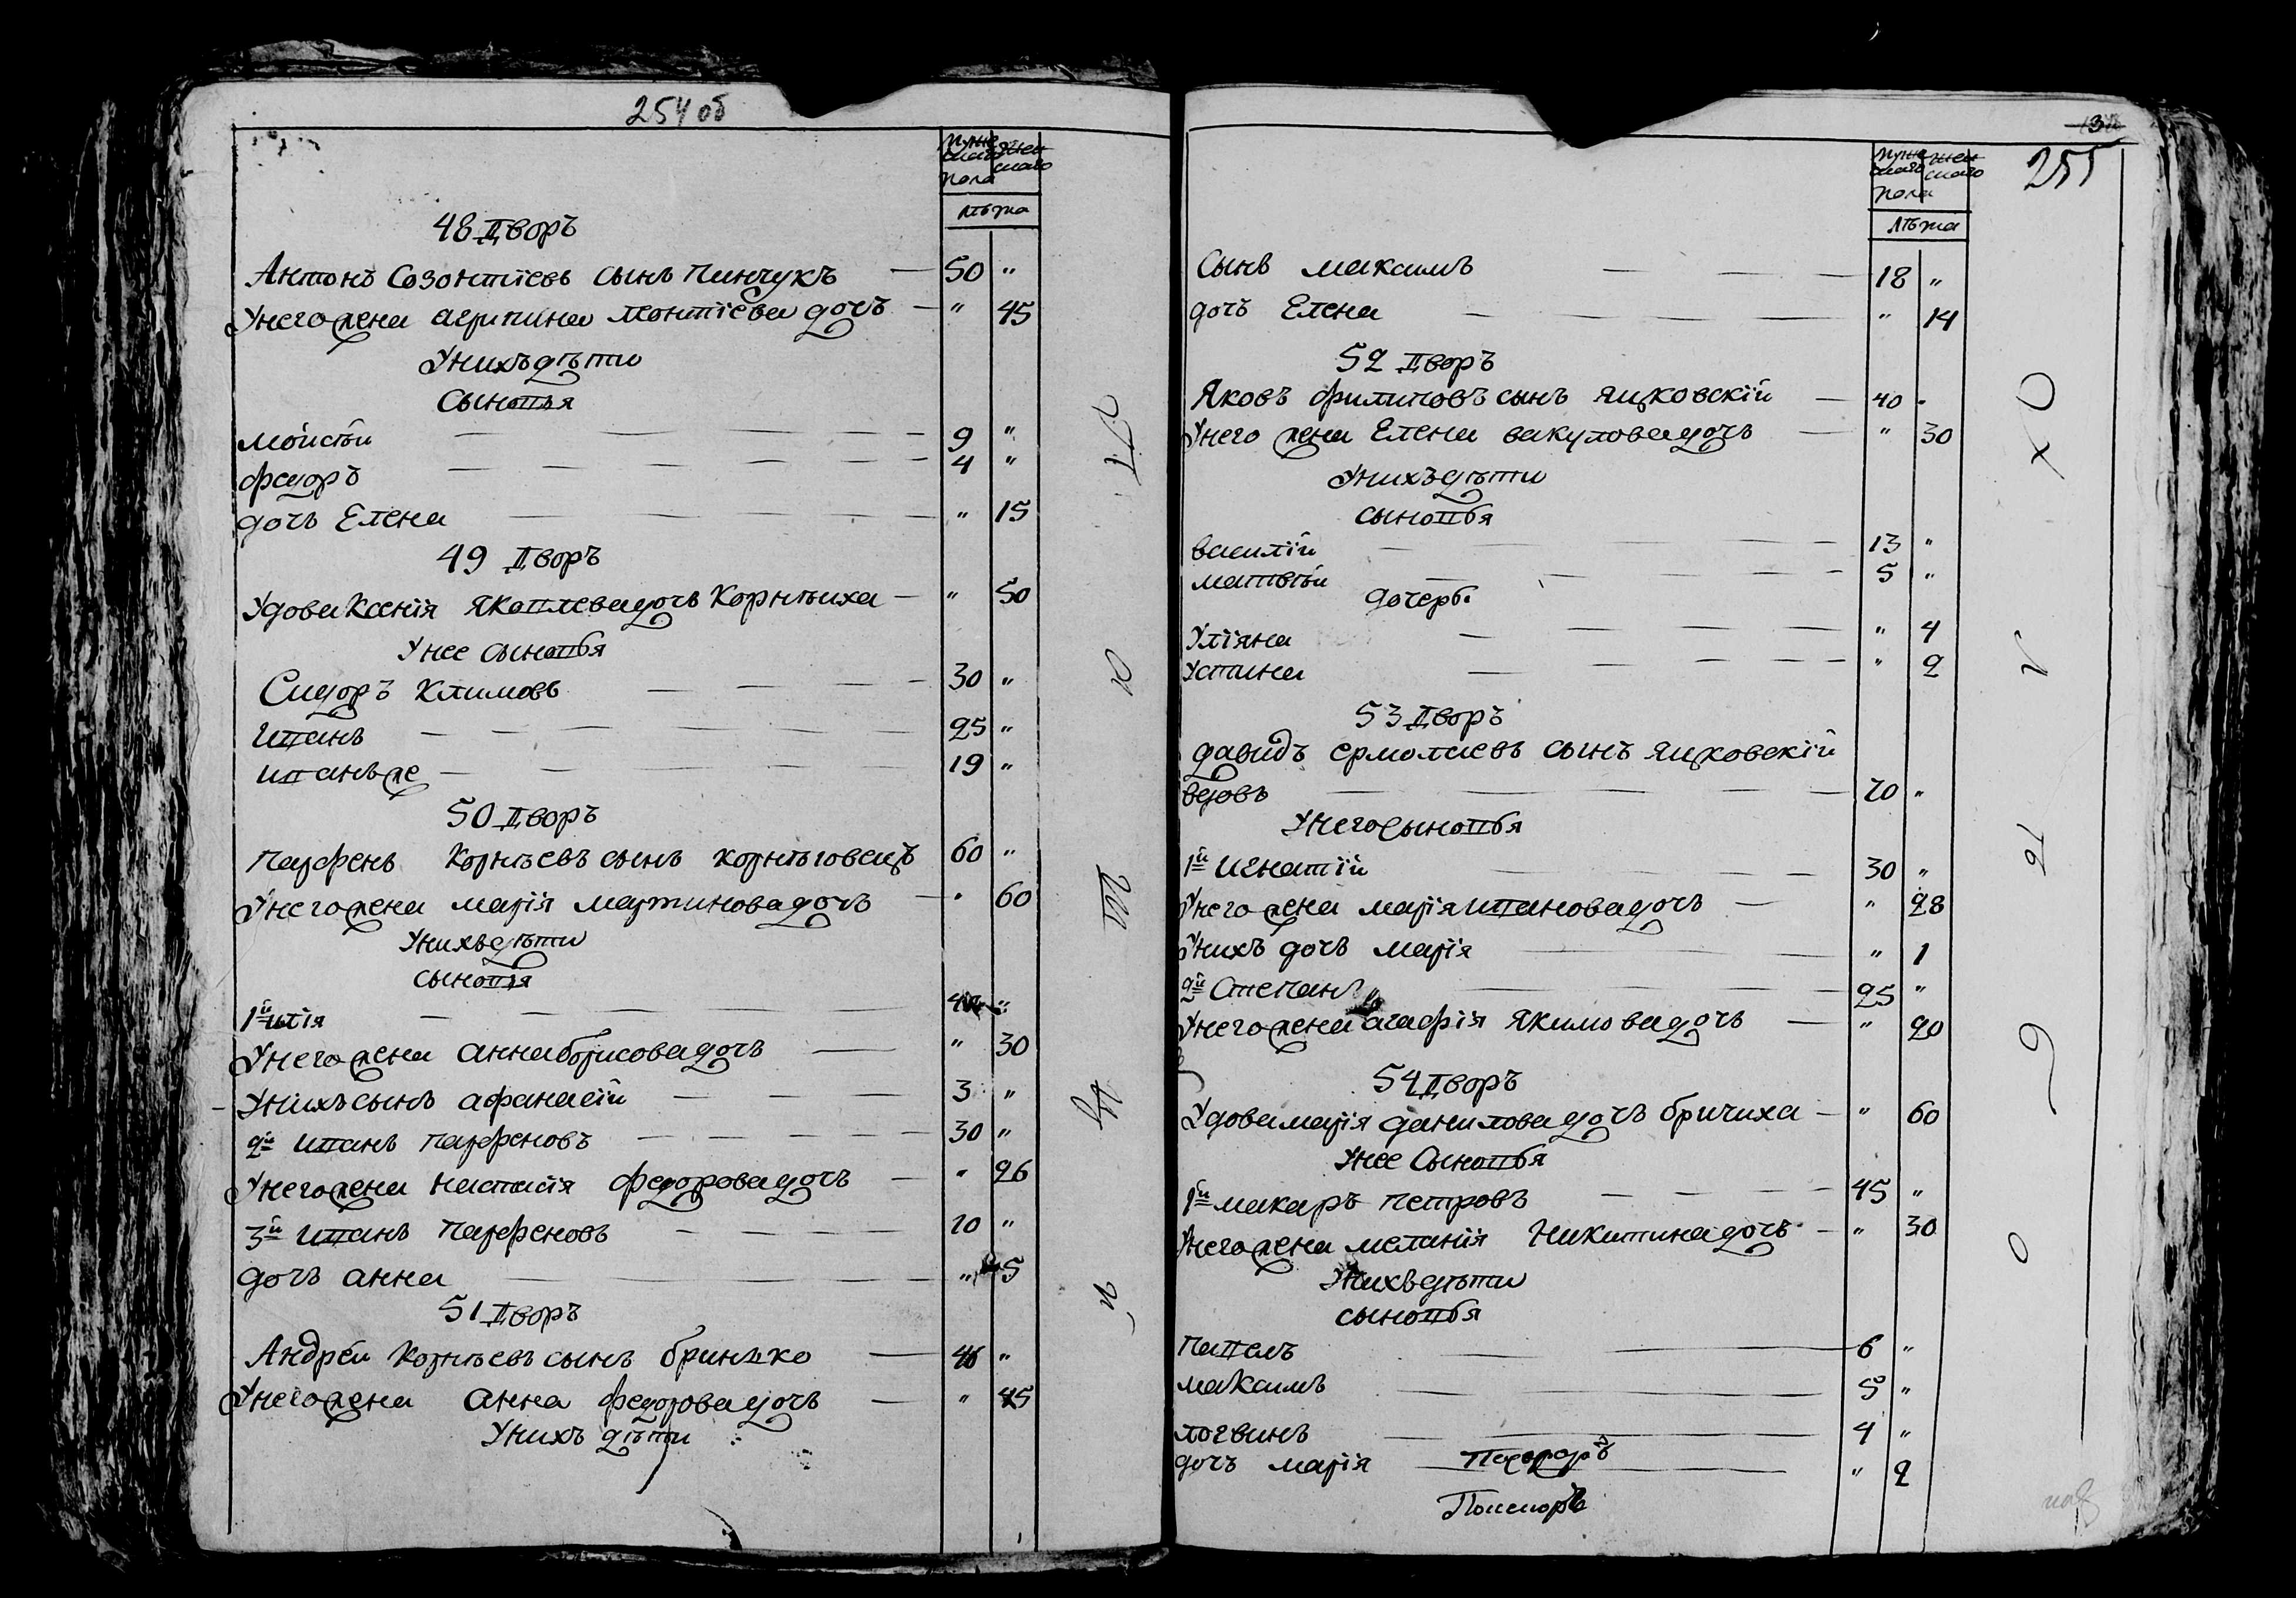 254 об
мужескаго пола женскаго
лѣта
48 Дворъ
Антонъ Созонтіевъ сынъ пинчукъ — 50 "
Унего жена агрипина леонтіева дочъ — " 45
Унихъ дѣти
Сыновья
мойсѣй — 9 "
федоръ — 4 "
дочъ Елена — " 15
49 Дворъ
Удова Ксенія яковлева дочъ Корнѣиха — " 50
Унее сыновья
Сидоръ Климовъ — 30 "
иванъ — 25 "
иванъ же — 19 "
50 Дворъ
парфенъ Корнѣевъ сынъ корнѣговецъ 60 "
Унего жена марія мартинова дочъ — " 60
Унихъ дѣти
сыновья
1й илія — "
Унего жена анна борисова дочъ — " 30
Унихъ сынъ афанасій — 3 "
2й иванъ парфеновъ — 30 "
Унего жена настасія федорова дочъ — " 26
3й иванъ парфеновъ — 20 "
дочъ анна — " 5
51 Дворъ
Андрей Корнѣевъ сынъ бринъко — 46 "
Унего жена анна федорова дочъ — " 45
Унихъ дѣти
255
мужескаго пола женскаго
лѣта
Сынъ максимъ — 18 "
дочъ Елена — " 14
52 Дворъ
Яковъ филиповъ сынъ яцковскій — 40 "
Унего жена Елена вакулова дочъ — " 30
Унихъ дѣти
сыновья
василій — 13 "
матвѣй — 5 "
дочери
Уліяна — " 4
Устина — " 2
53 Дворъ
давидъ ермолаевъ сынъ яцковскій
вдовъ — 70 "
Унего сыновья
1й игнатій — 30 "
Унего жена марія иванова дочъ — " 28
Унихъ дочъ марія — " 1
2й Степанъ — 25 "
Унего жена агафія якимова дочъ — " 20
54 Дворъ
Удова марія данилова дочъ бричиха — " 60
Унее Сыновья
1й макаръ петровъ — 45 "
Унего жена меланія Никитина дочъ — " 30
Унихъ дѣти
сыновья
павелъ — 6 "
максимъ — 5 "
логвинъ — 4 "
дочъ марія — " 2